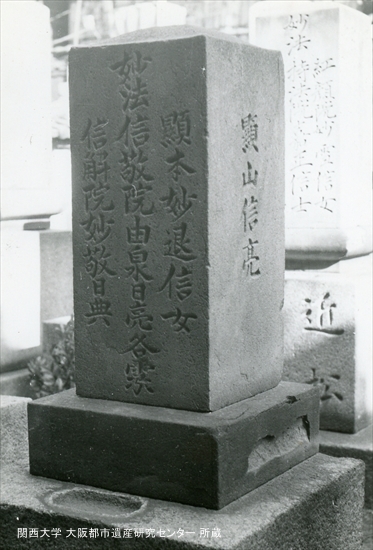 顯山信亮
顯本妙退信女
妙法信敬院由泉日亮各霊
信解院妙敬日典
紅顔妙雲信女
妙法
信士
近松
関西大学 大阪都市遺産研究センター 所蔵